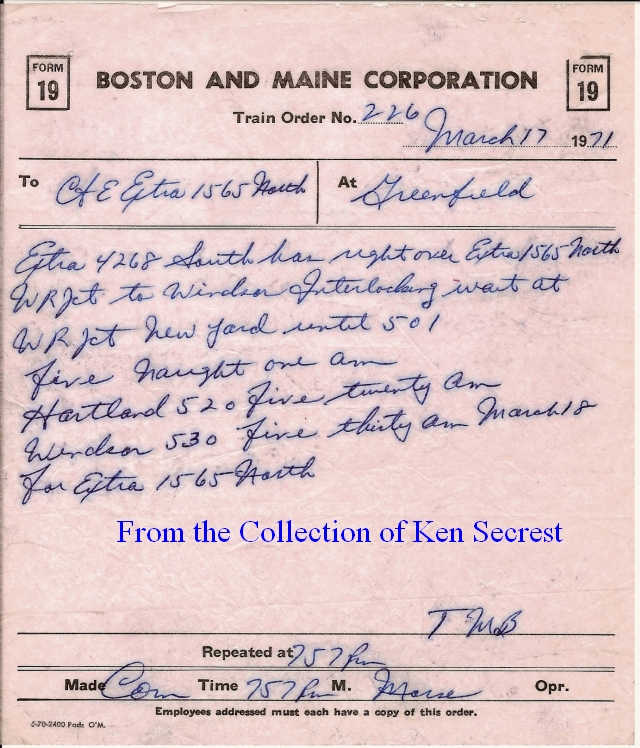 FORM 19
BOSTON AND MAINE CORPORATION
FORM 19
Train Order No. 226
March 17 1971
To C&E Extra 1565 North At Greenfield
Extra 4268 South has right over Extra 1565 North
WRJct to Windsor Interlocking wait at
WRJct New Yard until 501
five naught one am
Hartland 520 five twenty am
Windsor 530 five thirty am March 18
for Extra 1565 North
From the Collection of Ken Secrest
T MB
Repeated at 757 pm
Made Com Time 757 pm M. Morse Opr.
Employees addressed must each have a copy of this order.
5-70-2400 Pads O'M.